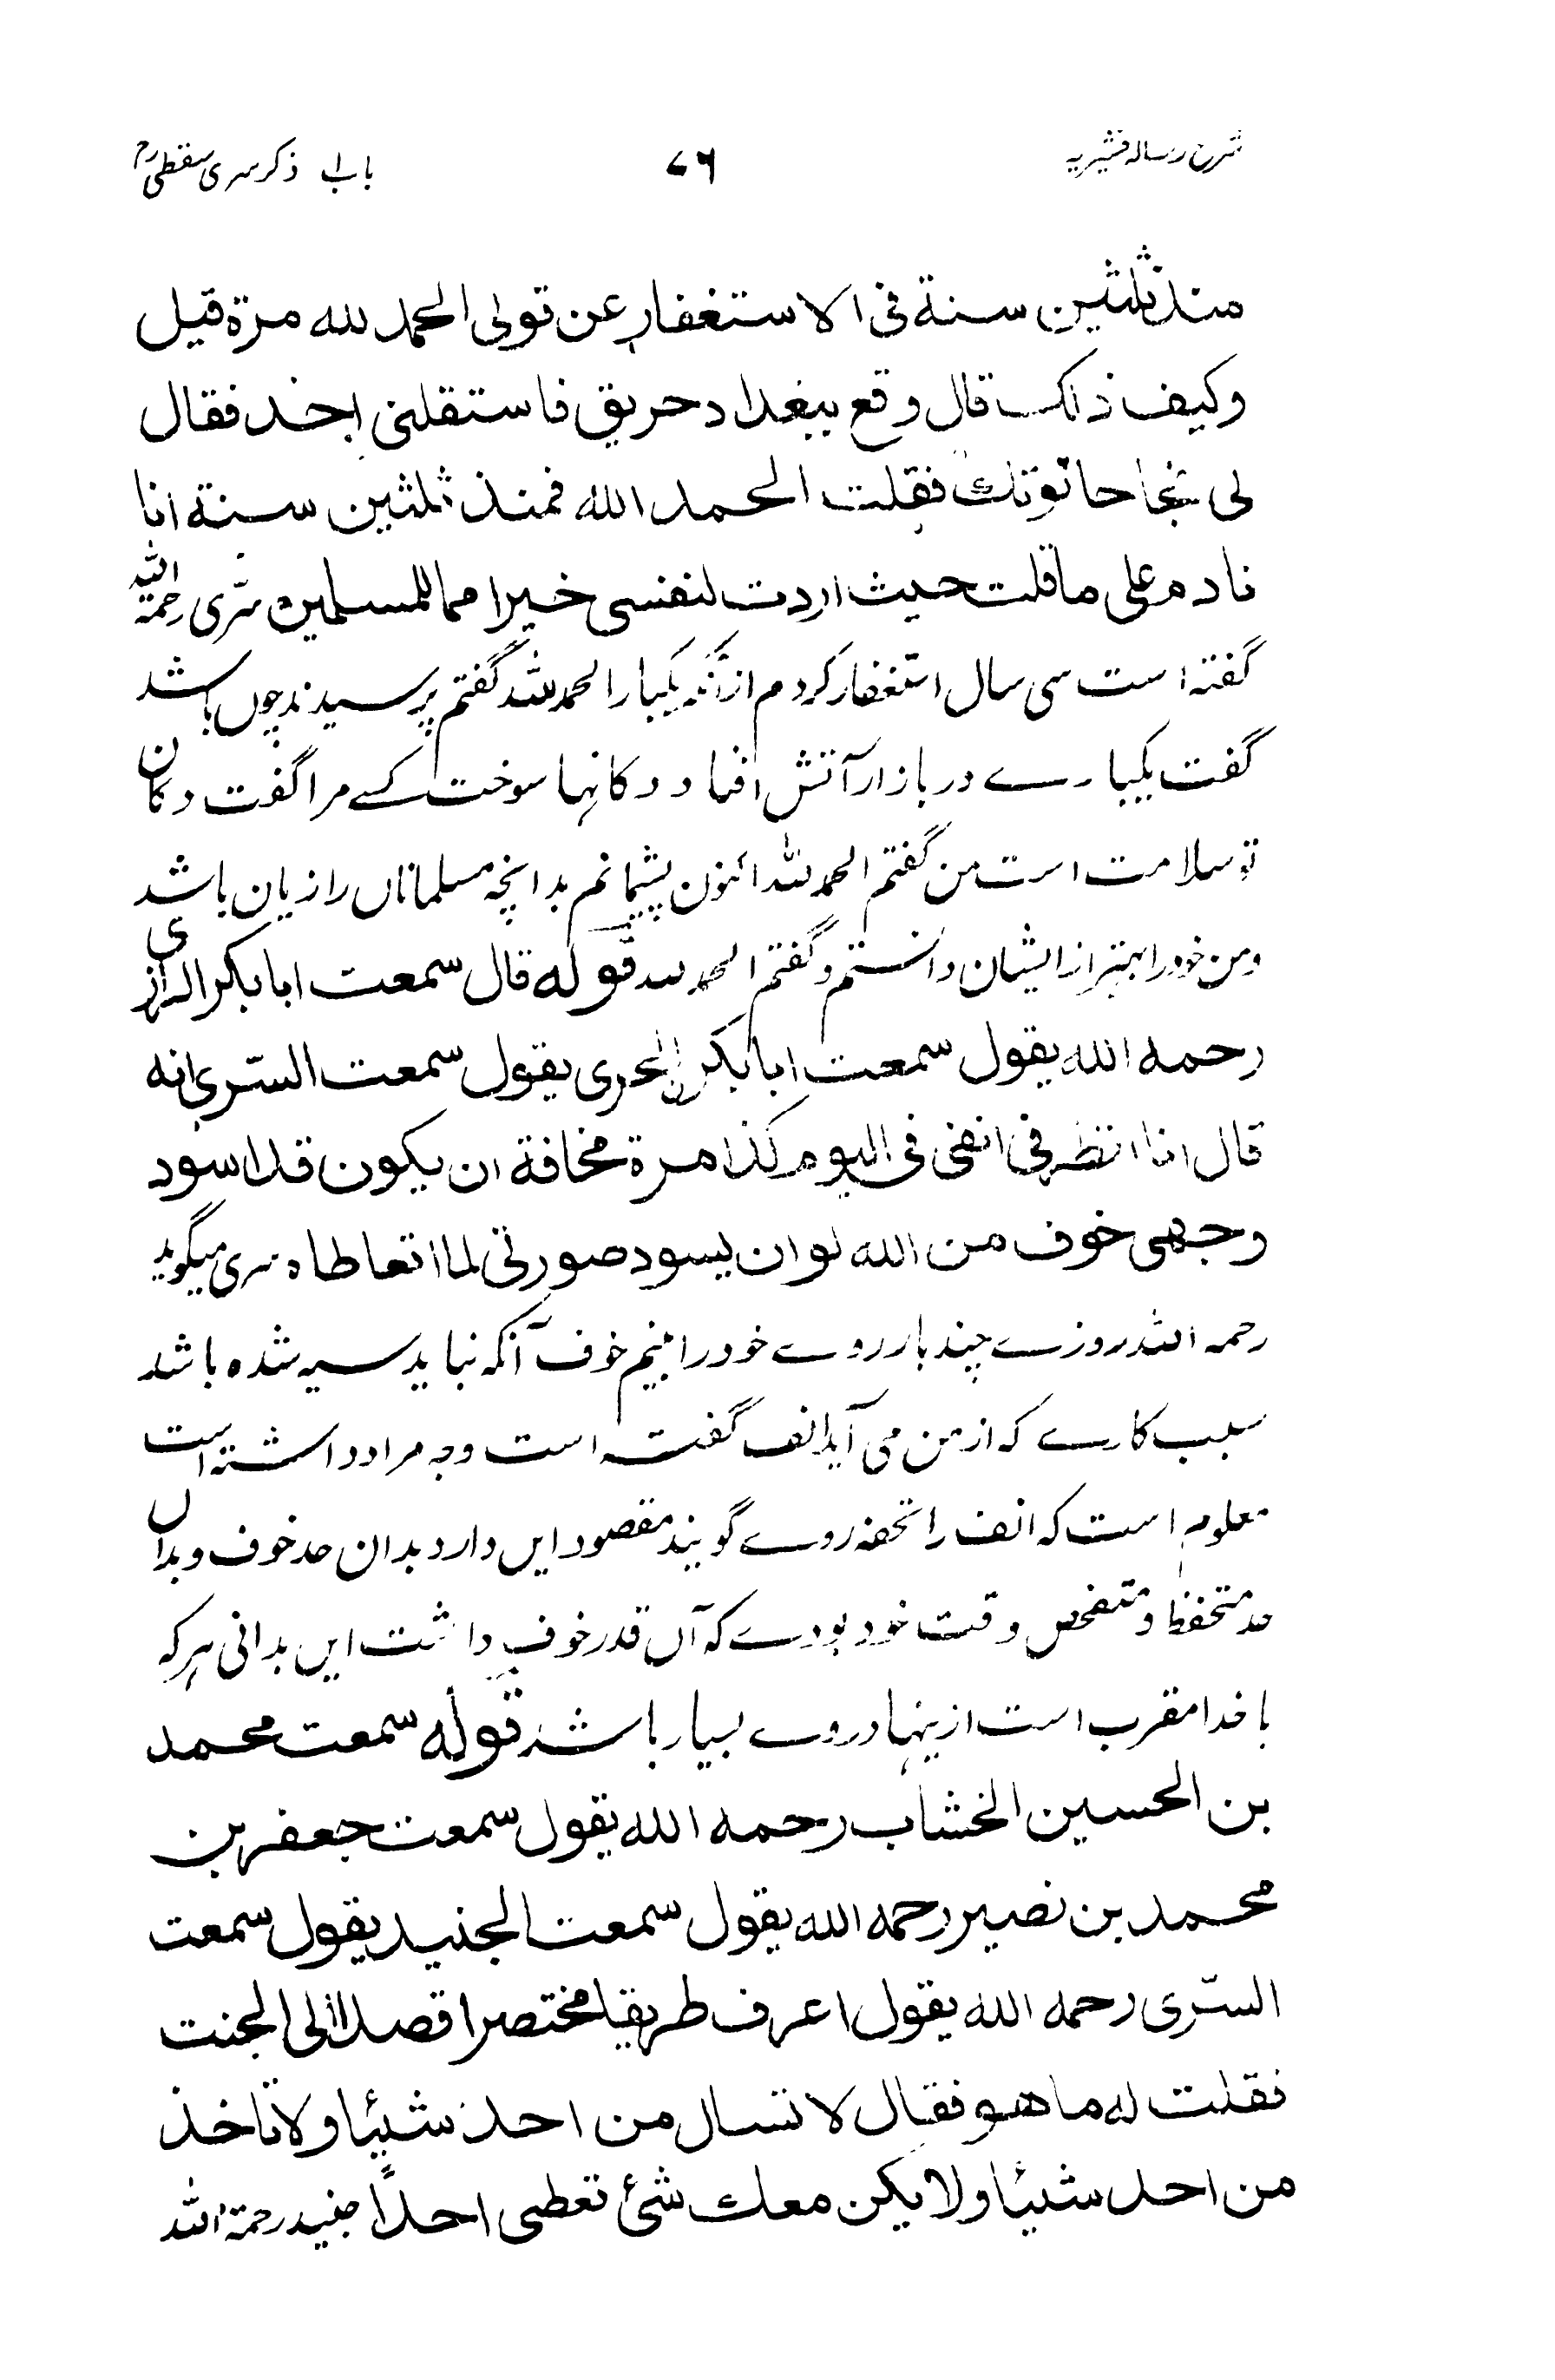 شرح رسالہ قشیریہ ۷۶ باب۱ ذکر سری سقطی رح
منذ ثلثین سنة فی الاستغفار عن قولی الحمد لله مرة قیل
وکیف ذلک قال وقع ببغداد حریق فاستقلنی احد فقال
لی نجا حانوتك فقلت الحمد الله فمنذ ثلثین سنة انا
نادم علی ما قلت حیث اردت لنفسی خیرا مما للمسلمین سّری رحمة الله
گفته است سی سال استغفار کردم از آنکه یکبار الحمد لله گفتم پرسیدند چوں باشد
گفت یکبارے در بازار آتش افتاد و دکانها سوخت کسے مرا گفت دکان
تو سلامت است من گفتم الحمد لله اکنون پشیمانم بدانچه مسلماناں را زیان باشد
ومن خود را بهتر از ایشان دانستم و گفتم الحمد لله قوله قال سمعت ابا بکر الرازی
رحمه الله یقول سمعت ابا بکر الحرری یقول سمعت السّری انه
قال انا انظر فی انفی فی الیوم کذا مرة مخافة ان یکون قد اسود
وجهی خوف من الله لو ان یسود صورتی لما اتعاطاه سری میگوید
رحمه الله روزے چند بار روے خود را بینم خوف آنکه نباید سیه شده باشد
سبب کارے که از من می آید انف گفته است وجه مراد داشته است
معلوم است که انف را تحفه روے گویند مقصود ایں دارد بدان حد خوف و بداں
حد متحفظ و متفحص وقت خود بودے که آں قدر خوف داشت ایں بدانی هر که
با خدا مقرب است ازینها دروے بسیار باشد قوله سمعت محمد
بن الحسین الخشاب رحمه الله یقول سمعت جعفر بن
محمد بن نصیر رحمه الله یقول سمعت الجنید یقول سمعت
السّری رحمه الله یقول اعرف طریقا مختصرا قصدا الی الجنت
فقلت له ما هو فقال لا تسال من احد شیئا ولا تاخذ
من احد شیئا ولا یکن معك شئ تعطی احدًا جنید رحمة الله